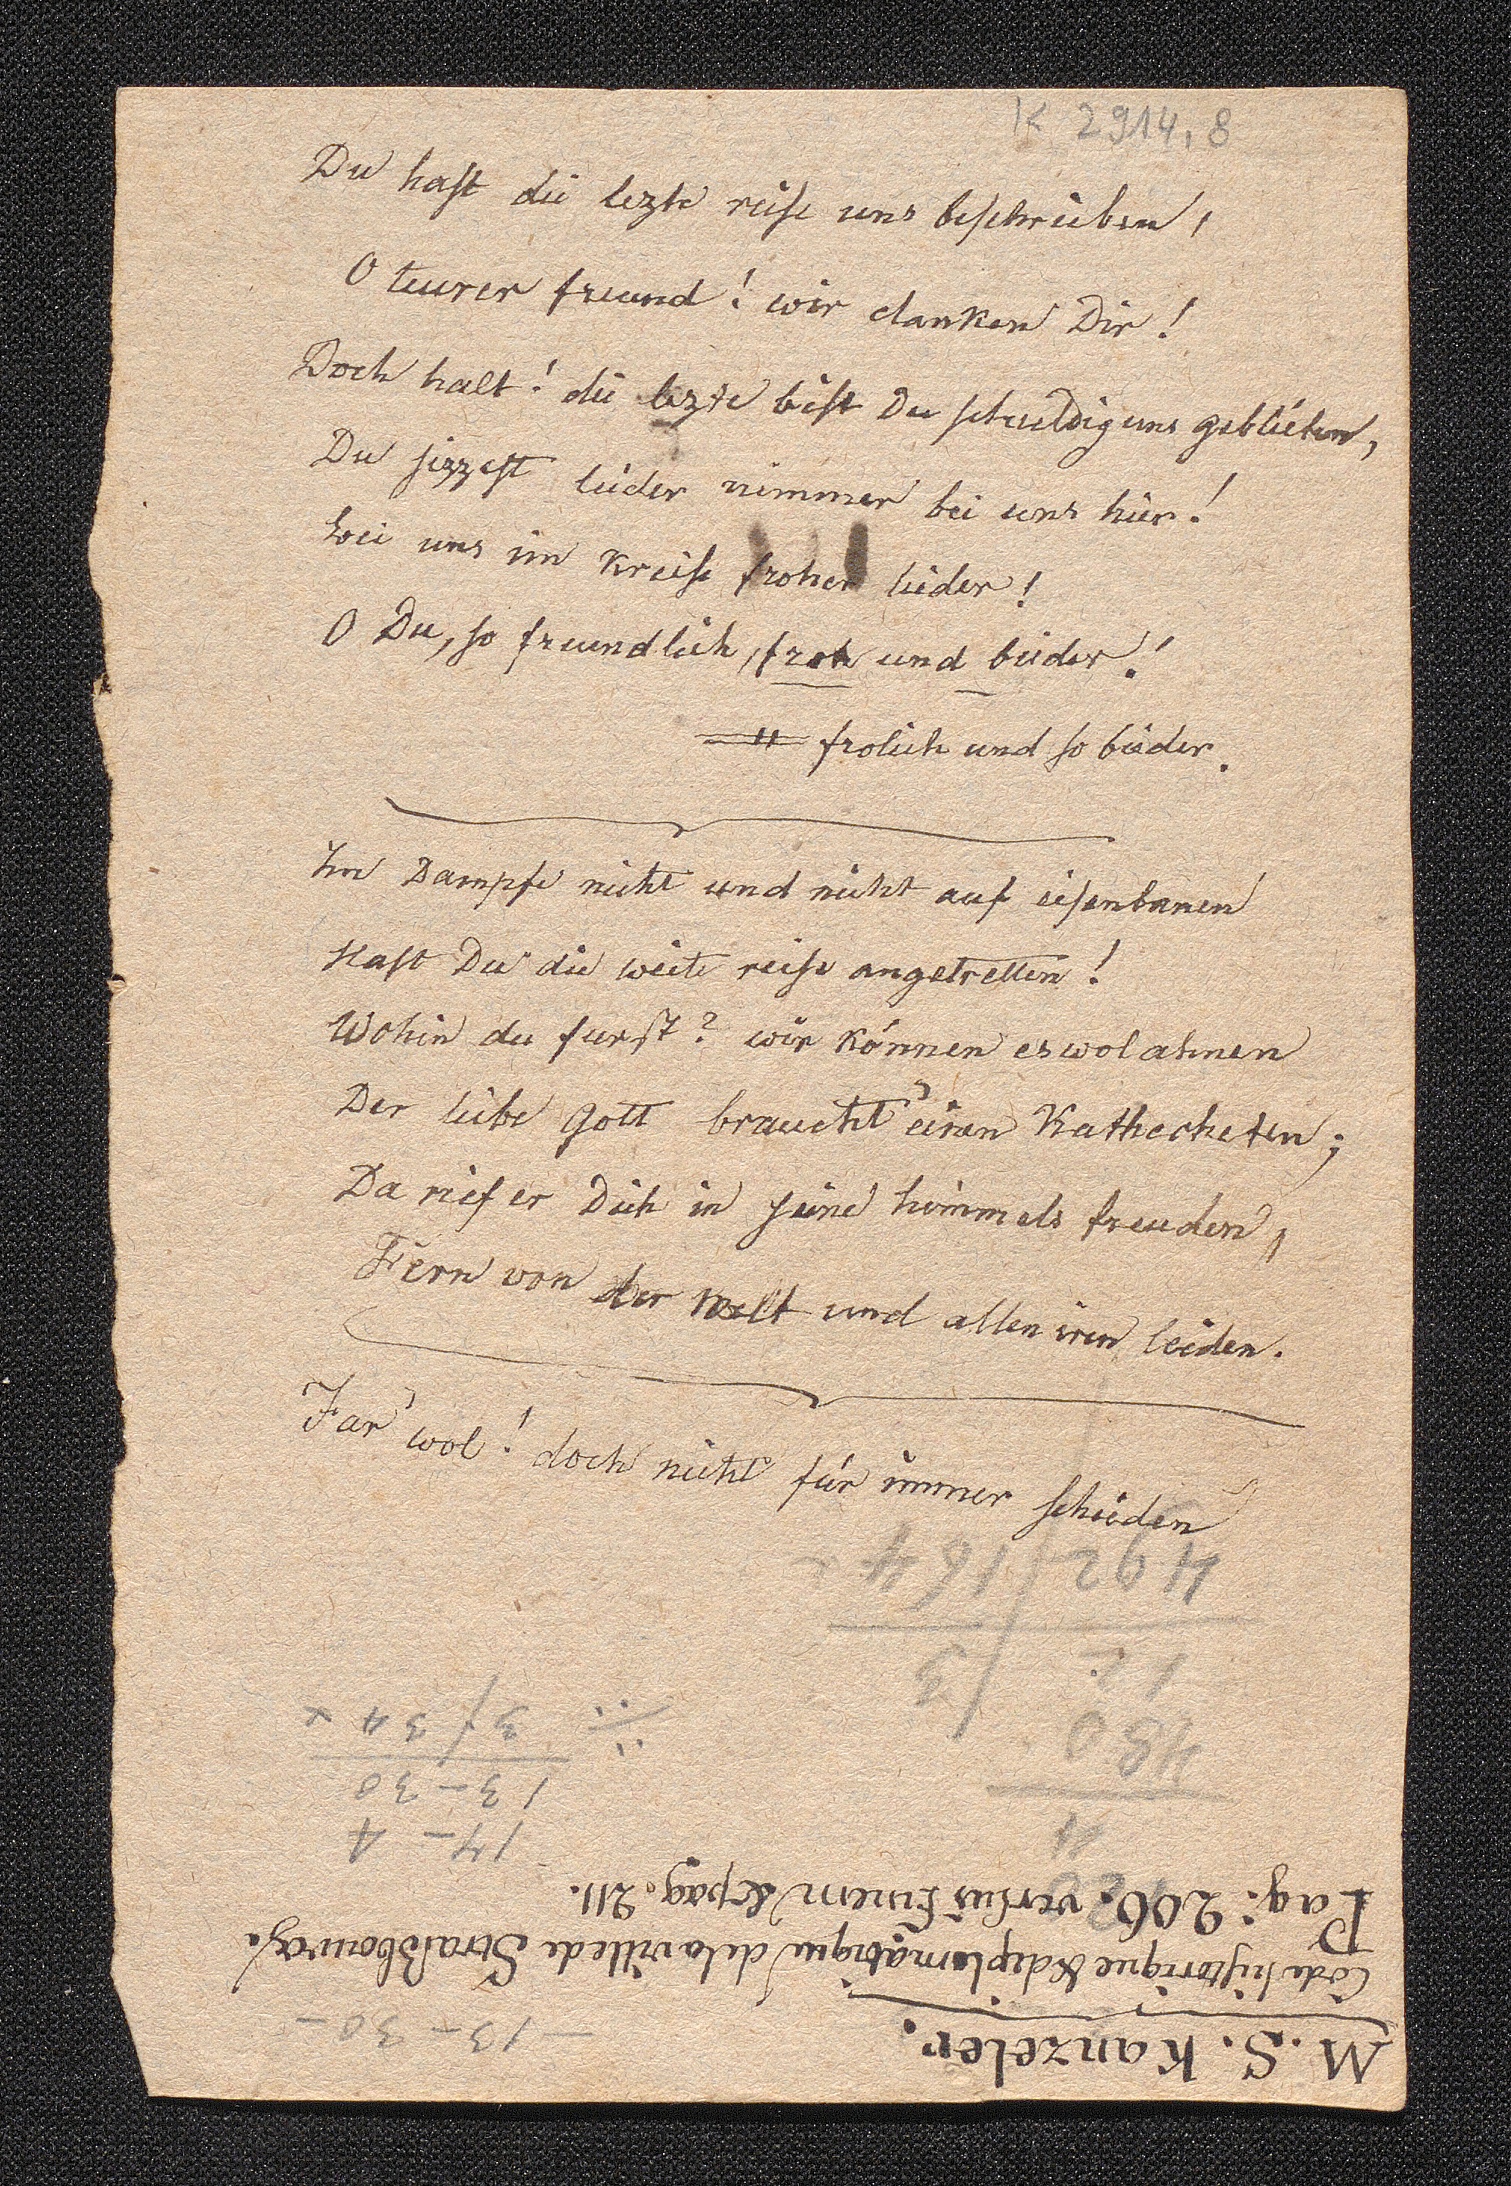 K 2914,8
Du hast die lezte reise uns beschrieben,
O teurer freund! wir danken Dir!
Doch halt! die lezte bist Du schuldig uns geblieben,
Du sizzest leider nimmer bei uns hier!
bei uns im kreise froher lieder!
O Du, so freundlich, froh und bieder!
" frolich und so bieder.
Im Dampfe nicht und nicht auf eisenbanen
Hast Du die weite reise angetretten!
Wohin du furst? wir können es wol ahnen
Der liebe Gott braucht einen Kathecheten;
Da rief er Dich in seine himmels freuden,
Fern von der welt und allen iren leiden.
Far' wol! doch nicht für immer scheiden
492/164
12 /3
480
11
120
÷ 3/34 x
13-30
17-4
M. S. Kanzeler.
Code historique & diplomatique de la ville de Straßbourg.
Pag: 206. versus finem & pag. 211.
-13-30-